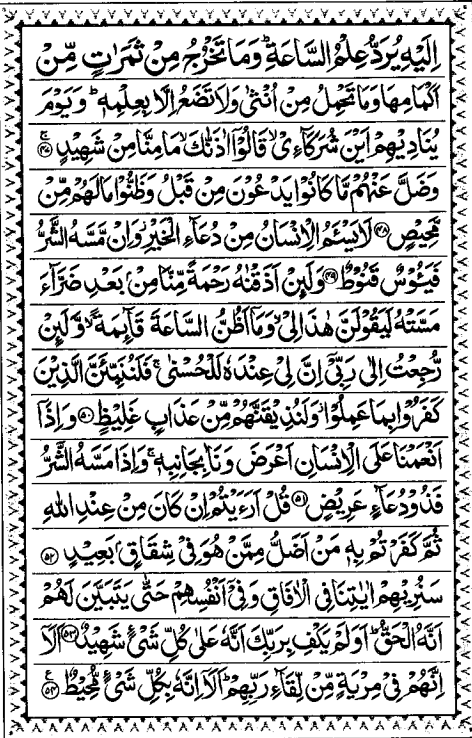 اِلَيْهِ يُرَدُّ عِلْمُ السَّاعَةِ ؕ وَمَا تَخْرُجُ مِنْ ثَمَرٰتٍ مِّنْ
اَكْمَامِهَا وَمَا تَحْمِلُ مِنْ اُنْثٰى وَلَا تَضَعُ اِلَّا بِعِلْمِهٖ ؕ وَيَوْمَ
يُنَادِيْهِمْ اَيْنَ شُرَكَآءِىْ ۙ قَالُوْۤا اٰذَنّٰكَ ۙ مَا مِنَّا مِنْ شَهِيْدٍ ۚ﴿۴۷﴾
وَضَلَّ عَنْهُمْ مَّا كَانُوْا يَدْعُوْنَ مِنْ قَبْلُ وَظَنُّوْا مَا لَهُمْ مِّنْ
مَّحِيْصٍ ﴿۴۸﴾ لَا يَسْـَٔمُ الْاِنْسَانُ مِنْ دُعَآءِ الْخَيْرِ ؗ وَاِنْ مَّسَّهُ الشَّرُّ
فَيَـُٔوْسٌ قَنُوْطٌ ﴿۴۹﴾ وَلَئِنْ اَذَقْنٰهُ رَحْمَةً مِّنَّا مِنْۢ بَعْدِ ضَرَّآءَ
مَسَّتْهُ لَيَقُوْلَنَّ هٰذَا لِىْ ۙ وَمَاۤ اَظُنُّ السَّاعَةَ قَآئِمَةً ۙ وَّلَئِنْ
رُّجِعْتُ اِلٰى رَبِّىْۤ اِنَّ لِىْ عِنْدَهٗ لَلْحُسْنٰى ۚ فَلَنُنَبِّئَنَّ الَّذِيْنَ
كَفَرُوْا بِمَا عَمِلُوْا ؗ وَلَنُذِيْقَنَّهُمْ مِّنْ عَذَابٍ غَلِيْظٍ ﴿۵۰﴾ وَاِذَاۤ
اَنْعَمْنَا عَلَى الْاِنْسَانِ اَعْرَضَ وَنَاٰ بِجَانِبِهٖ ۚ وَاِذَا مَسَّهُ الشَّرُّ
فَذُوْ دُعَآءٍ عَرِيْضٍ ﴿۵۱﴾ قُلْ اَرَءَيْتُمْ اِنْ كَانَ مِنْ عِنْدِ اللّٰهِ
ثُمَّ كَفَرْتُمْ بِهٖ مَنْ اَضَلُّ مِمَّنْ هُوَ فِىْ شِقَاقٍۭ بَعِيْدٍ ﴿۵۲﴾
سَنُرِيْهِمْ اٰيٰتِنَا فِى الْاٰفَاقِ وَفِىْۤ اَنْفُسِهِمْ حَتّٰى يَتَبَيَّنَ لَهُمْ
اَنَّهُ الْحَقُّ ؕ اَوَلَمْ يَكْفِ بِرَبِّكَ اَنَّهٗ عَلٰى كُلِّ شَىْءٍ شَهِيْدٌ ﴿۵۳﴾ اَلَاۤ
اِنَّهُمْ فِىْ مِرْيَةٍ مِّنْ لِّقَآءِ رَبِّهِمْ ؕ اَلَاۤ اِنَّهٗ بِكُلِّ شَىْءٍ مُّحِيْطٌ ﴿۵۴﴾